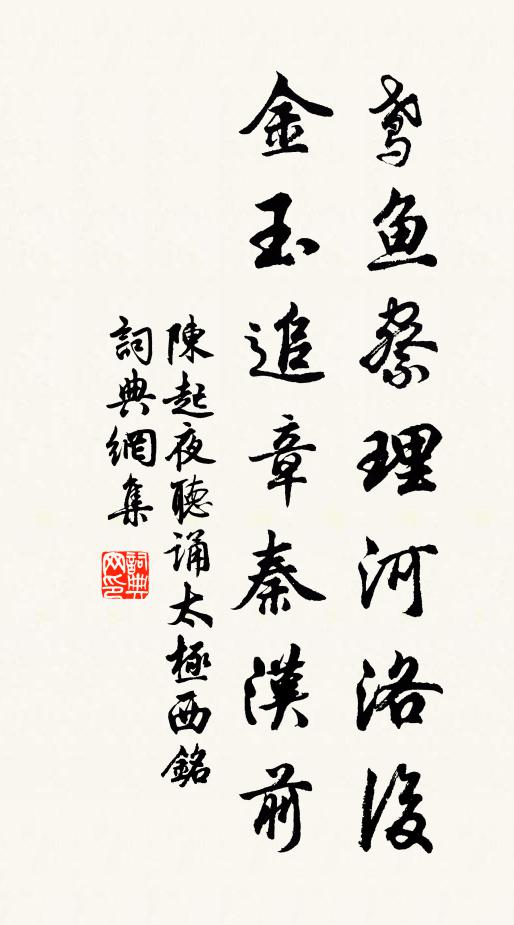 鸢鱼察理河洛後
金玉追章秦漢前
陳起夜聽诵太極西銘
詞典網集
詞典网印